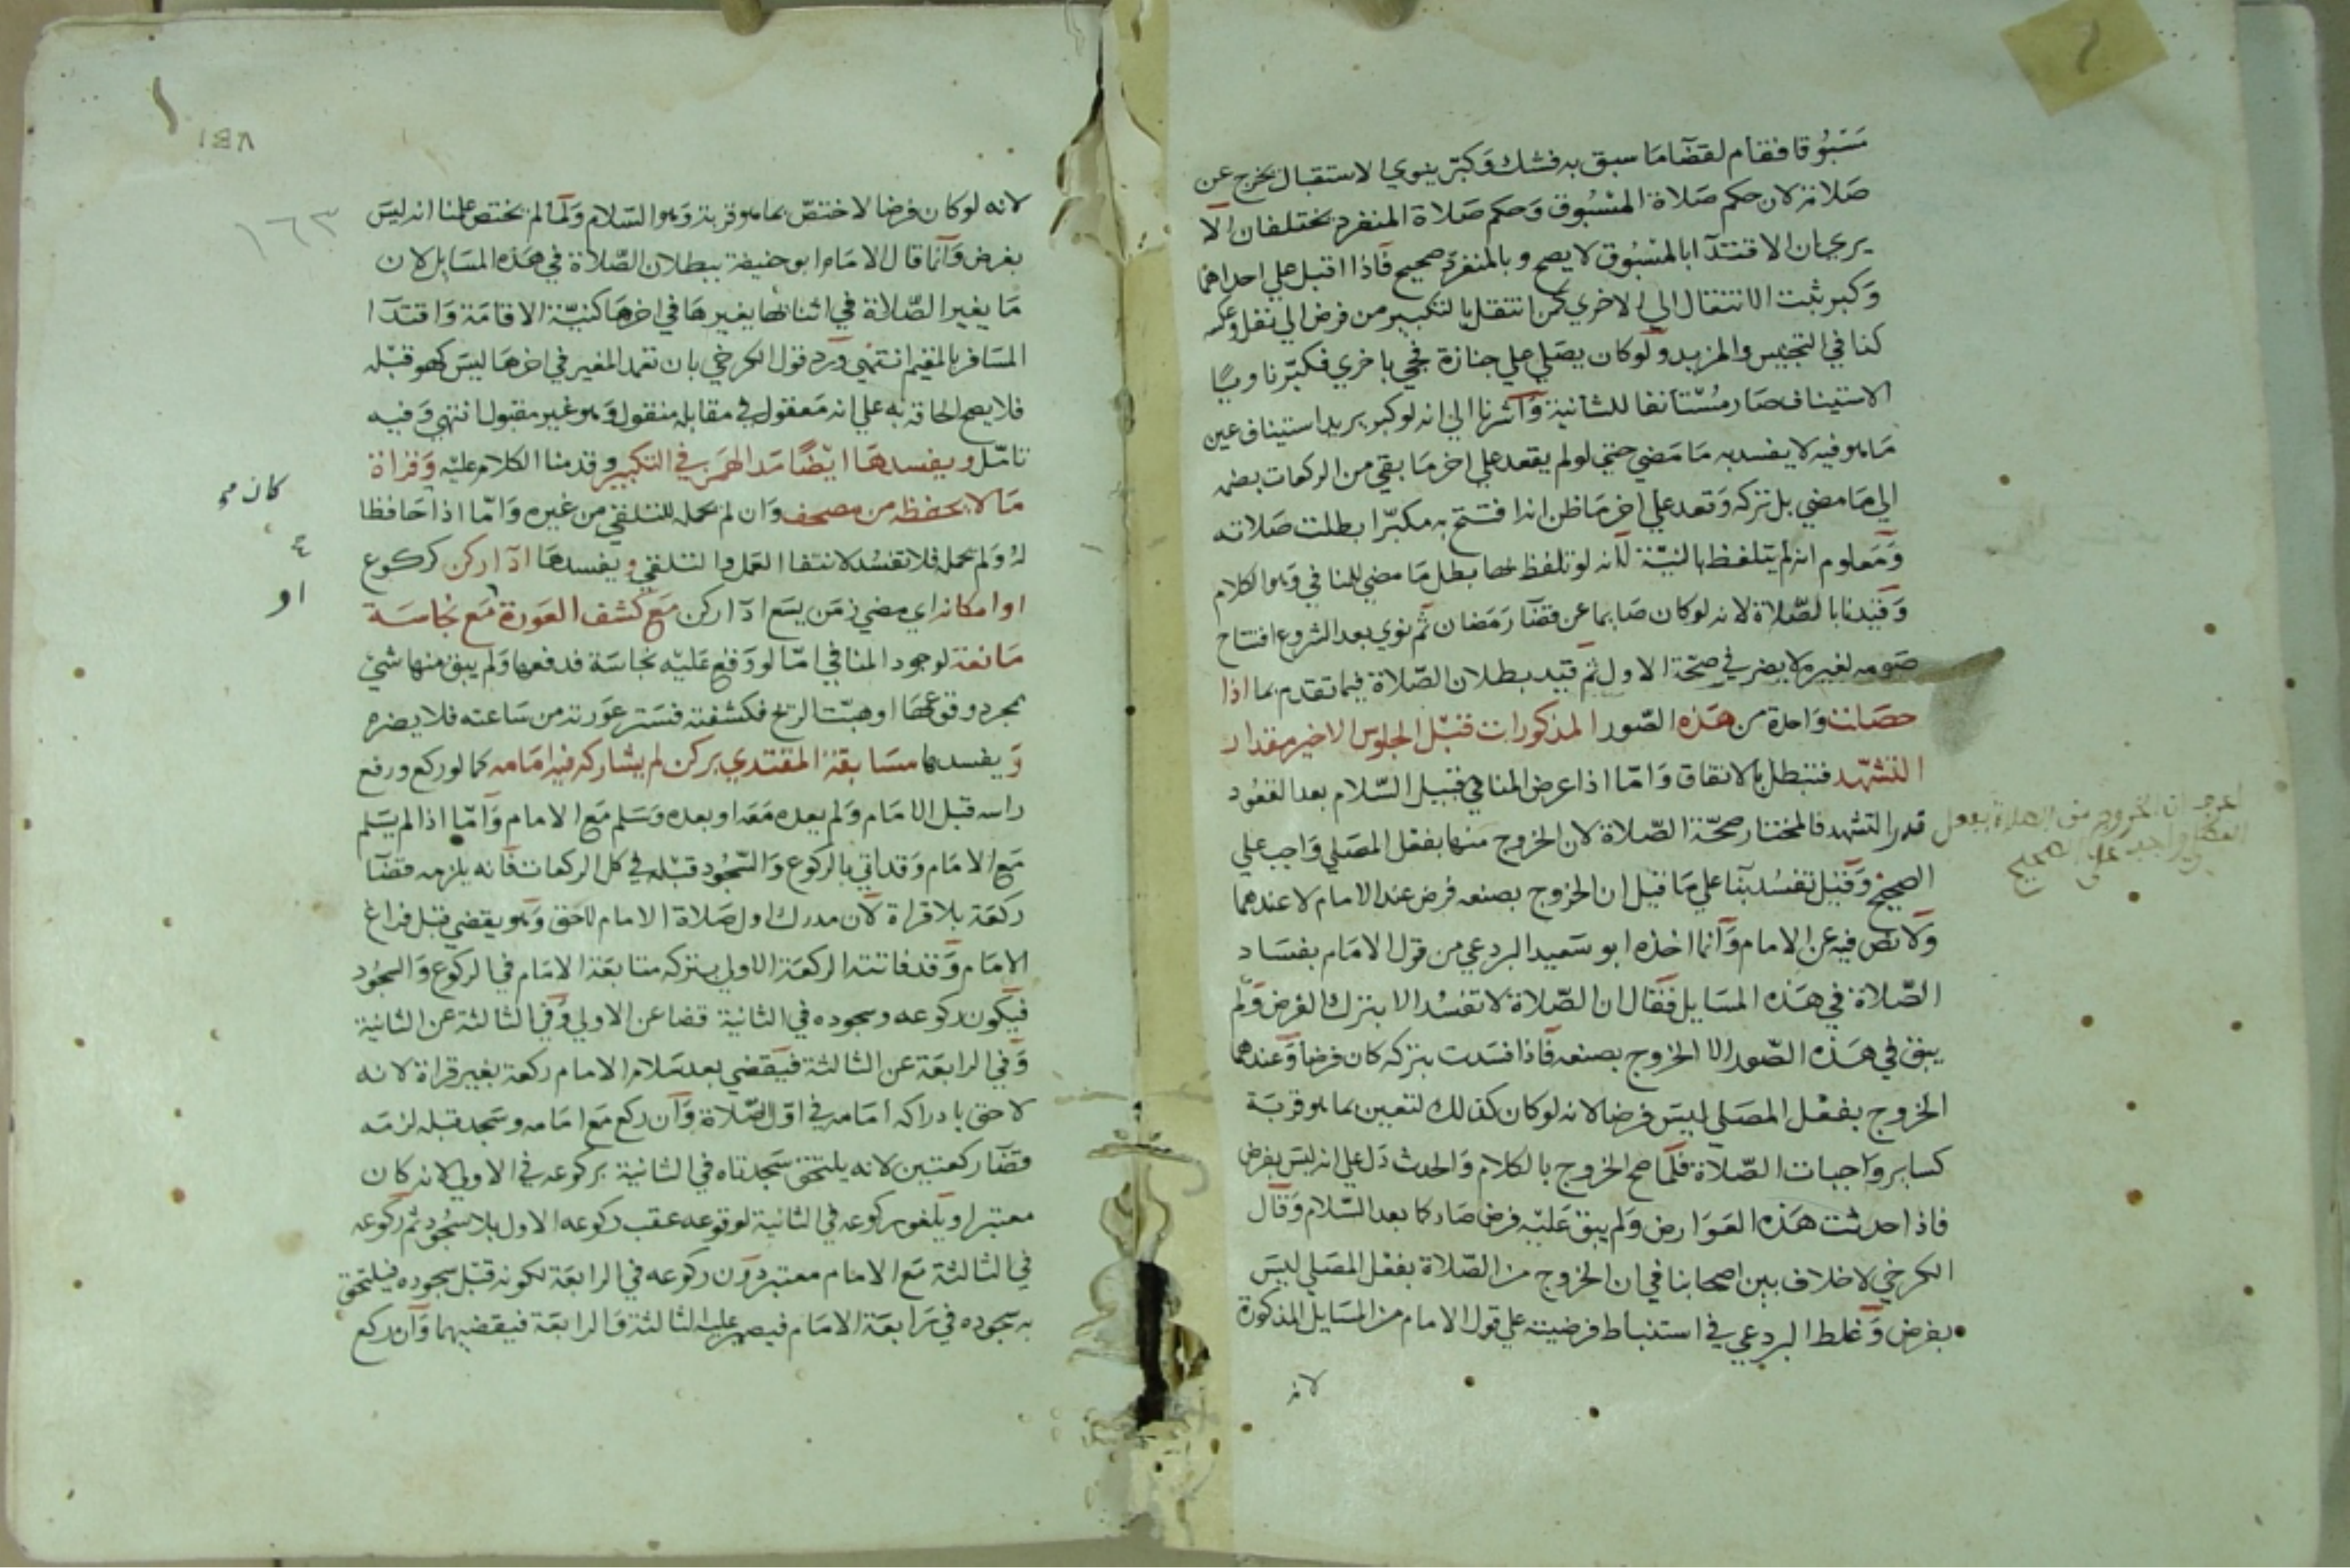 مَسْبُوقا فقام لقضآ مَا سبق به فشك وَكبّر ينوي الاستقبال يخرج عن
صَلاته لان حكم صَلاة المسْبُوق وَحكم صَلاة المنفرد يختلفان الا
يري ان الاقتدآ بالمسْبُوق لا يصح وبالمنفرد صحيح فاذا اقبل علي احداهما
وَكبر ثبت الانتقال الي الاخري كمن انتقل بالتكبير من فرض الي نفل وعكسه
كذا في التجنيس والمزيد ولو كان يصَلي علي جنازة فجي باخري فكبّر ناويًا
الاستيناف صَار مُسْتانفا للثانية وَاشرنا الي انه لو كبر يريد استيناف عين
مَا هو فيه لا يفسد به مَا مَضي حتي لو لم يقعد علي اخر مَا بقي من الركعات بضمه
الي مَا مضي بل تركه وَقعد علي اخر مَا ظن انه افتتح به مكبّرا بطلت صَلاته
وَمَعلوم انه لم يتلفظ بالنيّة لانه لو تلفظ بها بطل مَا مضي للمنافي وَهو الكلام
وَقيّدنا بالصّلاة لانه لو كان صَايما عن قضآ رَمَضان ثم نوي بعد الشروع افتتاح
صَومه لغيره لا يضر في صحّة الاول ثم قيّد بطلان الصّلاة فيما تقدم بما اذا
حصَلت وَاحدة من هَذه الصّور المذكورات قبْل الجلوس الاخير مقدار
التشهّد فتبطل بالاتفاق وَامّا اذا عرض المنافي قبيل السّلام بعد القعُود
قدر التشهد فالمختار صحّة الصّلاة لان الخروج منها بفعْل المصَلي وَاجب علي
الصحيح وَقيْل تفسُد بنآ علي مَا قيل ان الخروج بصنعه فرض عند الامام لا عندهما
وَلا نص فيه عن الامام وَانما اخذه ابو سَعيد البردعي من قول الامَام بفسَاد
الصّلاة في هَذه المسَايل فقال ان الصّلاة لا تفسُد الا بترك الفرض وَلم
يبق في هَذه الصّور الا الخروج بصنعه فاذا فسَدت بتركه كان فرضا وَعندهما
الخروج بفعْل المصَلي ليسَ فرضا لانه لو كان كذلك لتعين بما هو قربَة
كساير وَاجبات الصّلاة فلمّا صح الخروج بالكلام وَالحدث دَل علي انه ليسَ بفرض
فاذا حدثت هَذه العَوَارض وَلم يبق عَليْه فرض صَار كما بعد السّلام وَقال
الكرخي لا خلاف بين اصحابنا في ان الخروج من الصّلاة بفعْل المصَلي ليسَ
بفرض وَغلط البردعي في استنباط فرضيته علي قول الامام من المسَايل المذكورة
لانه
اعرف ان الخروج من الصلاة بفعل
المصلي واجب على الصحيح
١٤٨
١٦٣
لانه لو كان فرضا لاختصّ بما هو قربة وَهو السّلام وَلمّا لم يختص علمنا انه ليسَ
بفرض وَانما قال الامَام ابو حنيفة ببطلان الصّلاة في هَذه المسَايل لان
مَا يغير الصّلاة في اثنائها يغيرهَا في اخرهَا كنيّة الاقامَة وَاقتدآ
المسَافر بالمقيم انتهي وَرد قول الكرخي بان تعمد المغير في اخرهَا ليسَ كهو قبْله
فلا يصح الحاقه به علي انه مَعقول في مقابله منقول وَهو غير مقبول انتهي وَفيه
تامّل ويفسدهَا ايْضًا مَد الهمز في التكبير وقدمنا الكلام عليْه وَقراة
مَا لا يحفظه من مصحف وَان لم يحمله للتلقي من غيره وَامّا اذا حَافظا
كان
لهُ وَلم يحمله فلا تفسُد لانتفا العَمل والتلقي ويفسدهَا ادآ ركن كركوع
او امكانه اي مضي زمَن يسَع ادآ ركن مَع كشف العَورة مَع نجاسَة
او
مَانعة لوجود المنافي امّا لو وَقع عَليْه نجاسَة فدفعها وَلم يبق منها شئ
بمجرد وقوعها او هبّت الريح فكشفته فسَتر عورته من سَاعته فلا يضره
وَيفسدها مسَابقة المقتدي بركن لم يشاركه فيه امَامه كما لو ركع ورفع
راسه قبْل الامَام وَلم يعده مَعَه او بعده وَسَلم مَع الامام وَامّا اذا لم يسَلم
مَع الامَام وَقد اتي بالركوع وَالسّجُود قبْله في كل الركعات فانه يلزمه قضآ
ركعَة بلا قراة لان مدرك اول صَلاة الامام لاحق وَهو يقضي قبْل فراغ
الامَام وَقد فاتته الركعَة الاولي بتركه متابعَة الامَام في الركوع وَالسجُود
فيكون ركوعه وسجوده في الثانية قضا عن الاولي وَفي الثالثة عن الثانية
وَفي الرابعَة عن الثالثة فيقضي بعد سَلام الامام ركعة بغير قراة لانه
لاحق بادراكه امَامه في اوّل الصّلاة وَان ركع مَع امَامه وسَجد قبله لزمَه
قضَآ ركعتين لانه يلتحق سَجدتاه في الثانية بركوعه في الاولي لانه كان
معتبرا ويلغو ركوعه في الثانية لوقوعه عقب ركوعه الاول بلا سُجود ثم ركوعه
في الثالثة مَع الامام معتبر دون ركوعه في الرابعَة لكونه قبْل سجوده فيلتحق
به سجوده في رَابعَة الامَام فيصير عليه الثالثة وَالرابعَة فيقضيهما وَان ركع